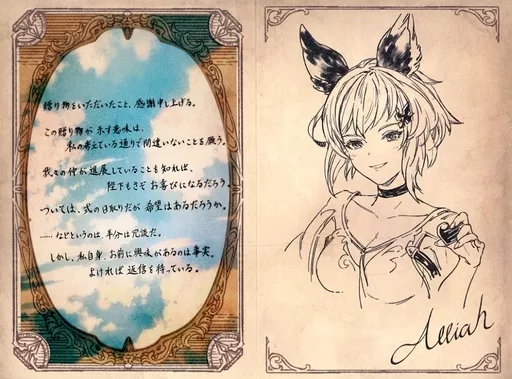 贈り物をいただいたこと、感謝申し上げる。
この贈り物が示す意味は、
私の考えている通りで間違いないことを願う。
我らの仲が進展していることを知れば、
陛下もさぞお喜びになるだろう。
ついては、式の日取りだが希望はあるだろうか。
……などというのは、半分は冗談だ。
しかし、私自身、お前に興味があるのは事実。
よければ返信を待っている。
Alliah